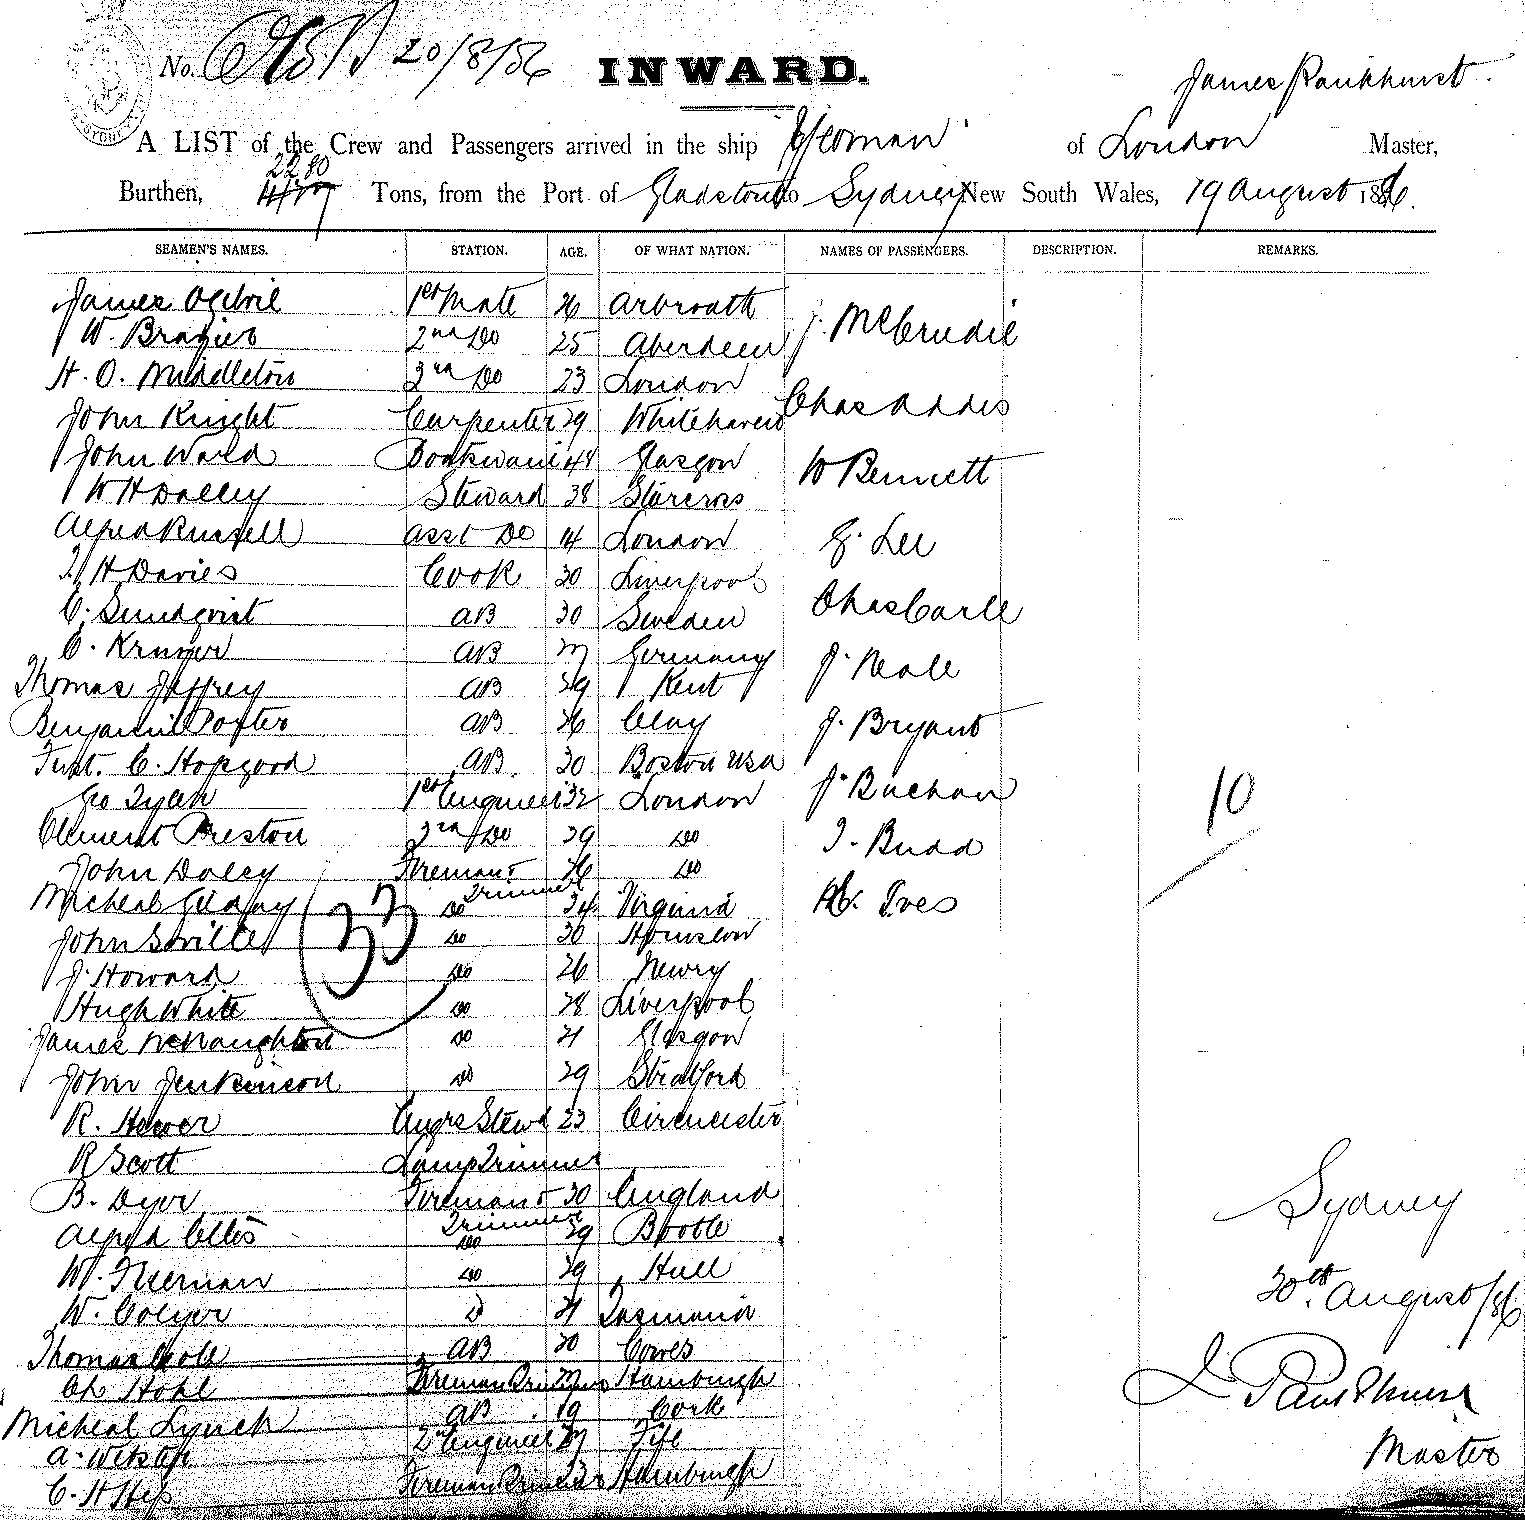 No. 20/8/86
INWARD.
James Pankhurst
A LIST of the Crew and Passengers arrived in the ship Yeoman of London Master,
Burthen, 2280 Tons, from the Port of Gladstone to Sydney New South Wales, 19 August 1886.
SEAMEN'S NAMES. STATION. AGE. OF WHAT NATION. NAMES OF PASSENGERS. DESCRIPTION. REMARKS.
James Ogilvie 1st Mate 26 Arbroath J. McCrudie
W. Brazier 2nd Do 25 Aberdeen
H. O. Middleton 3rd Do 23 London
John Knight Carpenter 29 Whitehaven Chas Addis
John Ward Boatswain 48 Glasgow W Bennett
W H Dalley Steward 38 Starcross
Alfred Russell Asst Do 14 London G. Lee
H Davies Cook 30 Liverpool
C. Sundqvist AB 30 Sweden Chas Carle
C. Kruger AB 27 Germany J. Neale
Thomas Jeffrey AB 29 Kent
Benjamin Porter AB 26 Clay J. Bryant
C. Hopgood AB 30 Boston USA
Geo 1st Engineer 32 London J. Buchan
Clement Preston 3rd Do 29 Do J. Budd
John Daley Fireman & Trimmer 26 Do
Micheal Gilday Do 24 Virginia Ives
John Saville Do 30 Hounslow
J. Howard Do 26 Newry
Hugh White Do 28 Liverpool
James McNaughton Do 21 Glasgow
John Jenkinson Do 29 Stratford
R. Engrs Stewd 23 Cirencester
R Scott Lamp Trimmer
B. Dyer Fireman & Trimmer 30 England
Alfred Ellis Do 29 Bootle
W. Do 29 Hull
W. Colyer D 21 Tasmania
Thomas Cole AB 20 Cowes
Ch Hohl Fireman Trimmer 27 Hamburgh
Micheal Lynch AB 19 Cork
A. 2nd Engineer 27 Fife
C. H Hess Fireman Trimmer 23 Hamburgh
33
10
Sydney
20th August/86
J Pankhurst
Master